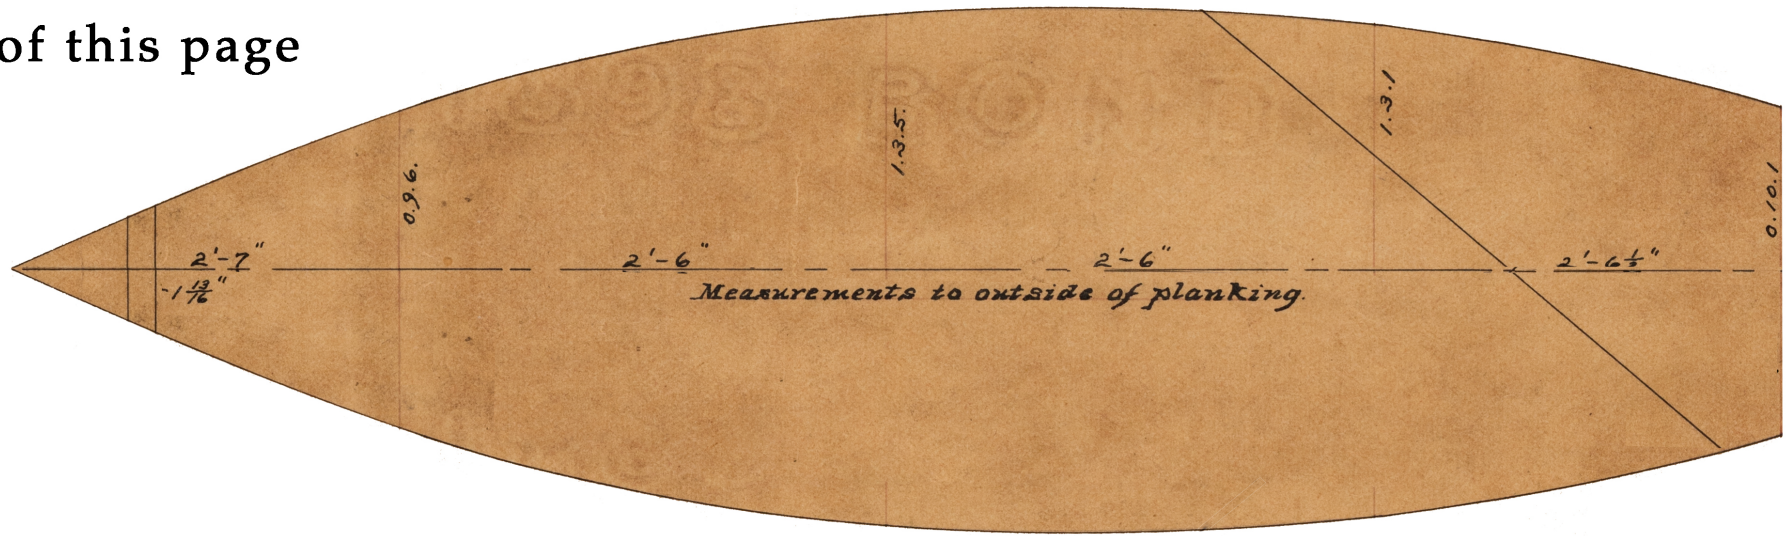 of this page
0.9.6.
1.3.5.
1.3.1
0.10.1
2'-7"
2'-6"
2'-6"
2'-6½"
-1 13/16"
Measurements to outside of planking.